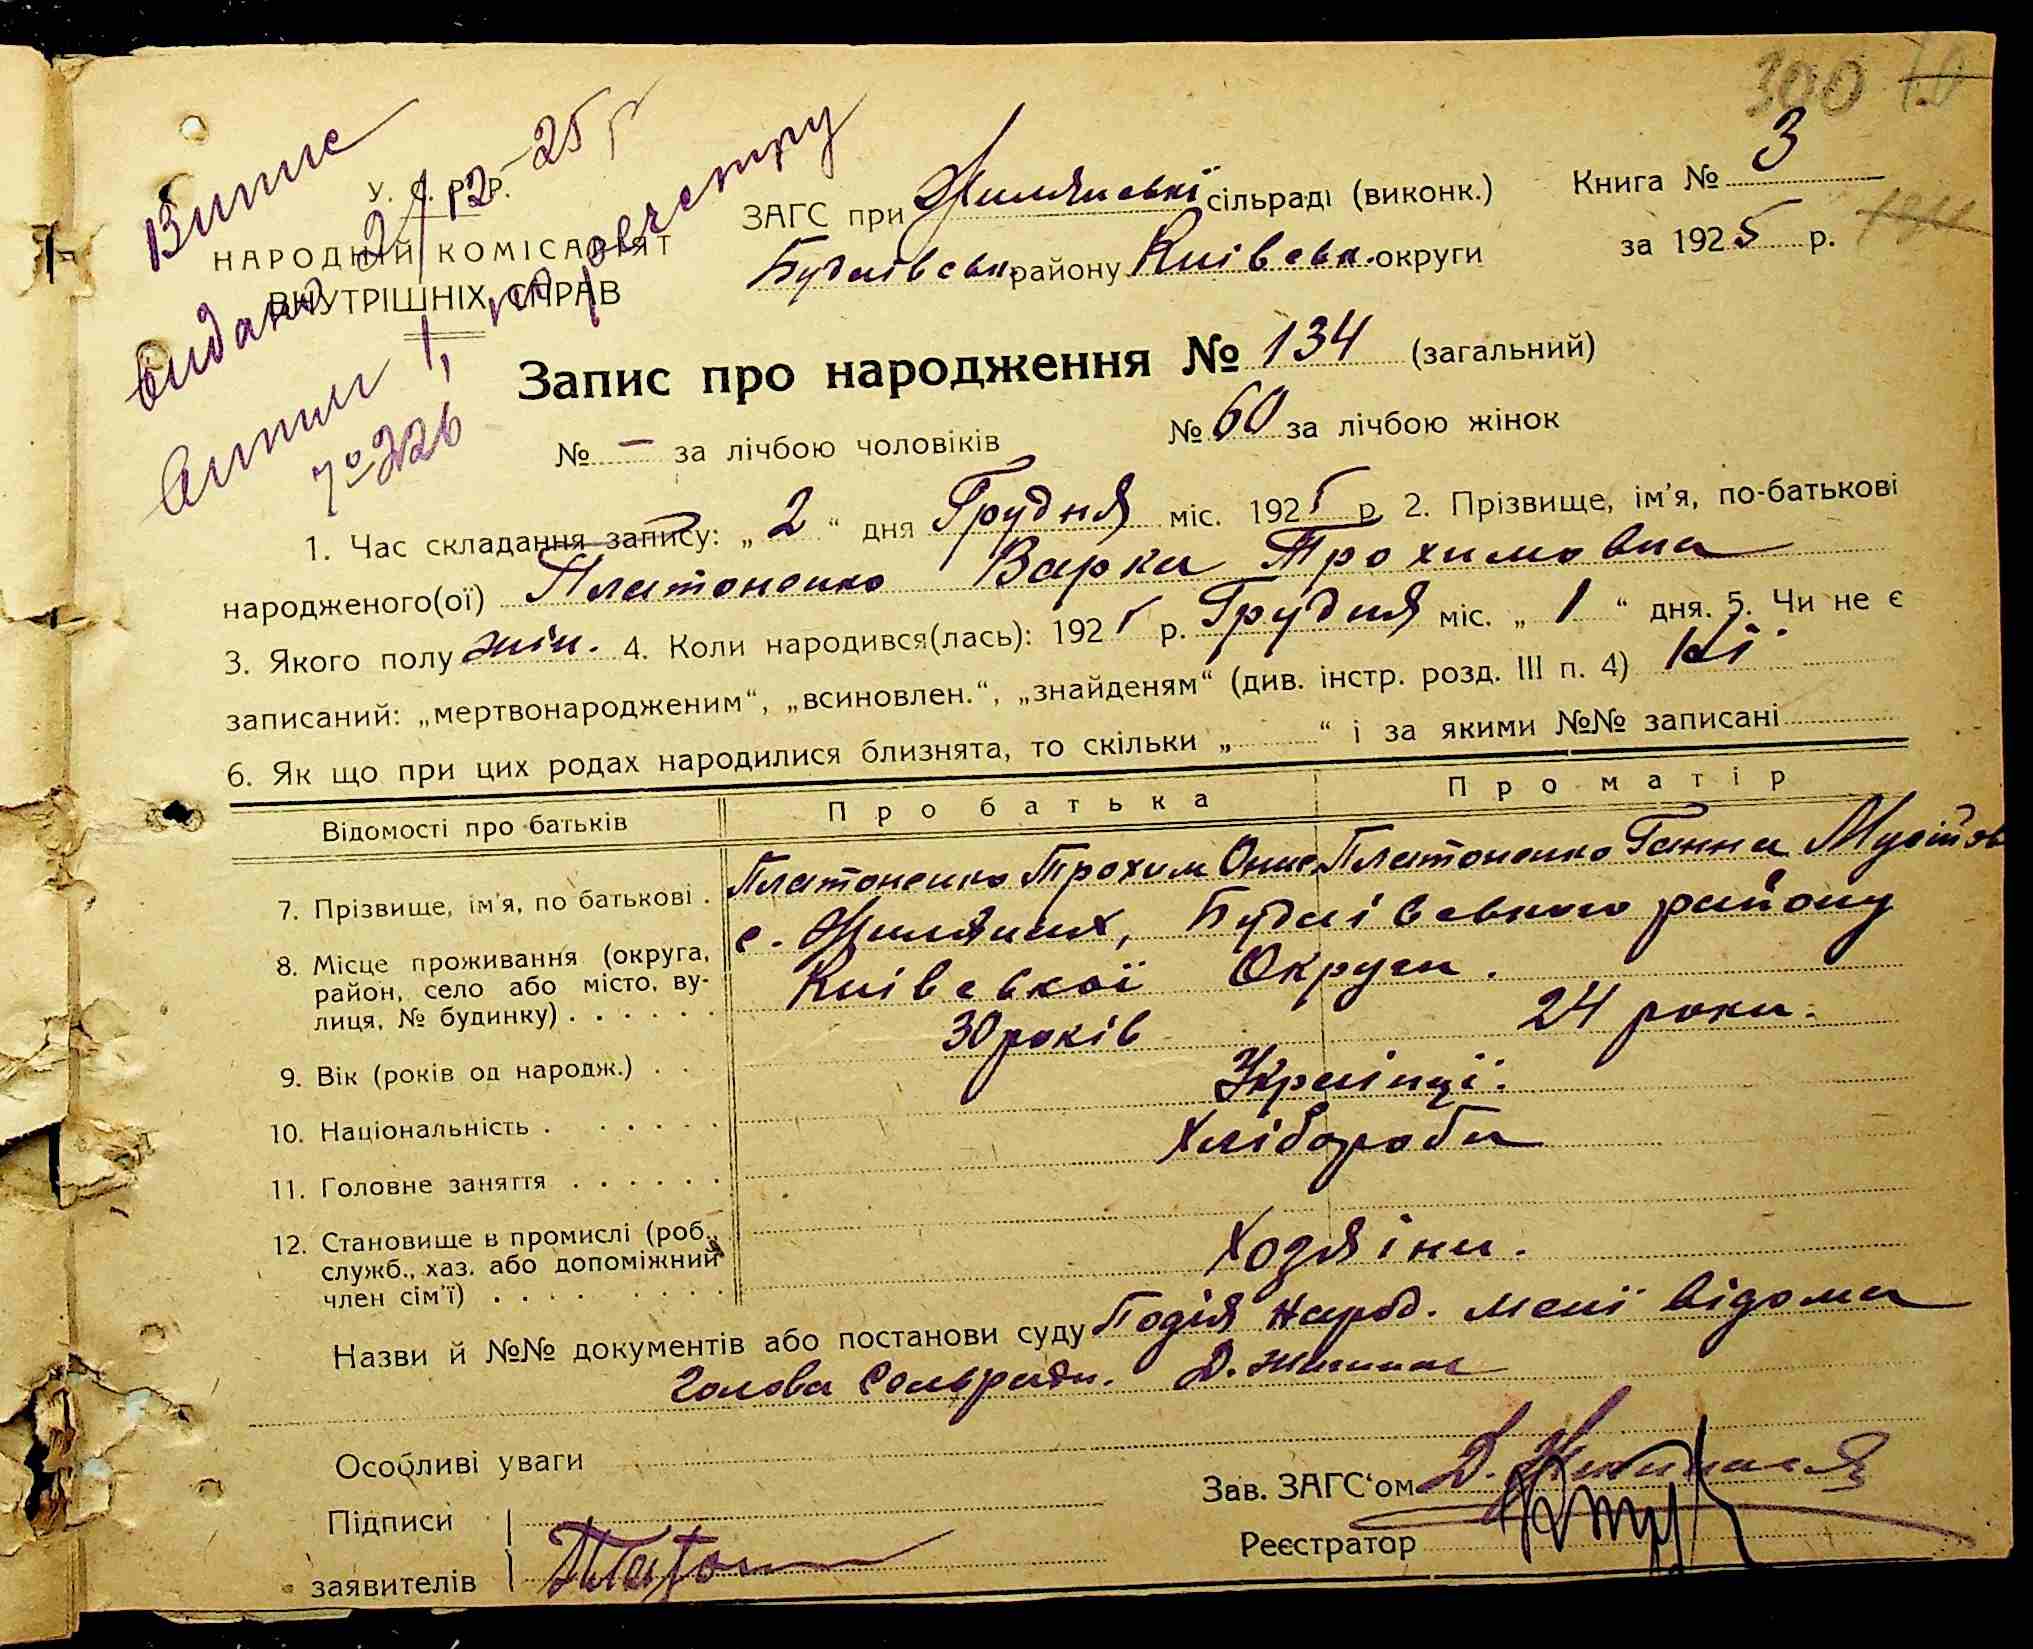 300
Випис
видано 2/12-25 р
Книга № 3
У. С. Р. Р.
НАРОДНИЙ КОМІСАРІЯТ
ВНУТРІШНІХ СПРАВ
1, по реєстру
№ 226
ЗАГС при Жилянські сільраді (виконк.)
Будаївськ. району Київськ. округи
за 1925 р.
Запис про народження № 134 (загальний)
№ – за лічбою чоловіків № 60 за лічбою жінок
1. Час складання запису: „ 2 “ дня Грудня міс. 1925 р. 2. Прізвище, ім'я, по-батькові
народженого(ої) Платоненко Варка Трохимовна
3. Якого полу жін. 4. Коли народився(лась): 1925 р. Грудня міс. „ 1 “ дня. 5. Чи не є
записаний: „мертвонародженим“, „всиновлен.“, „знайденям“ (див. інстр. розд. III п. 4) Ні.
6. Як що при цих родах народилися близнята, то скільки „ “ і за якими №№ записані
Відомості про батьків Про батька Про матір
7. Прізвище, ім'я, по батькові . Платоненко Трохим Онис Платоненко Ганна Мусійов
8. Місце проживання (округа, с. Жилянах, Будаівського району
район, село або місто, ву- Київської Округи.
лиця, № будинку) . . . . . .
9. Вік (років од народж.) . . 30 років 24 роки.
10. Національність . . . . . . Українці.
11. Головне заняття . . . . . . Хлібороби
12. Становище в промислі (роб., Хозяіни.
служб., хаз. або допоміжний
член сім'ї) . . . . . . . .
Назви й №№ документів або постанови суду Подія народ. мені відома
Голова Сольради. Д.
Особливі уваги
Зав. ЗАГС‘ом Д.
Підписи
Реєстратор
заявителів Платон